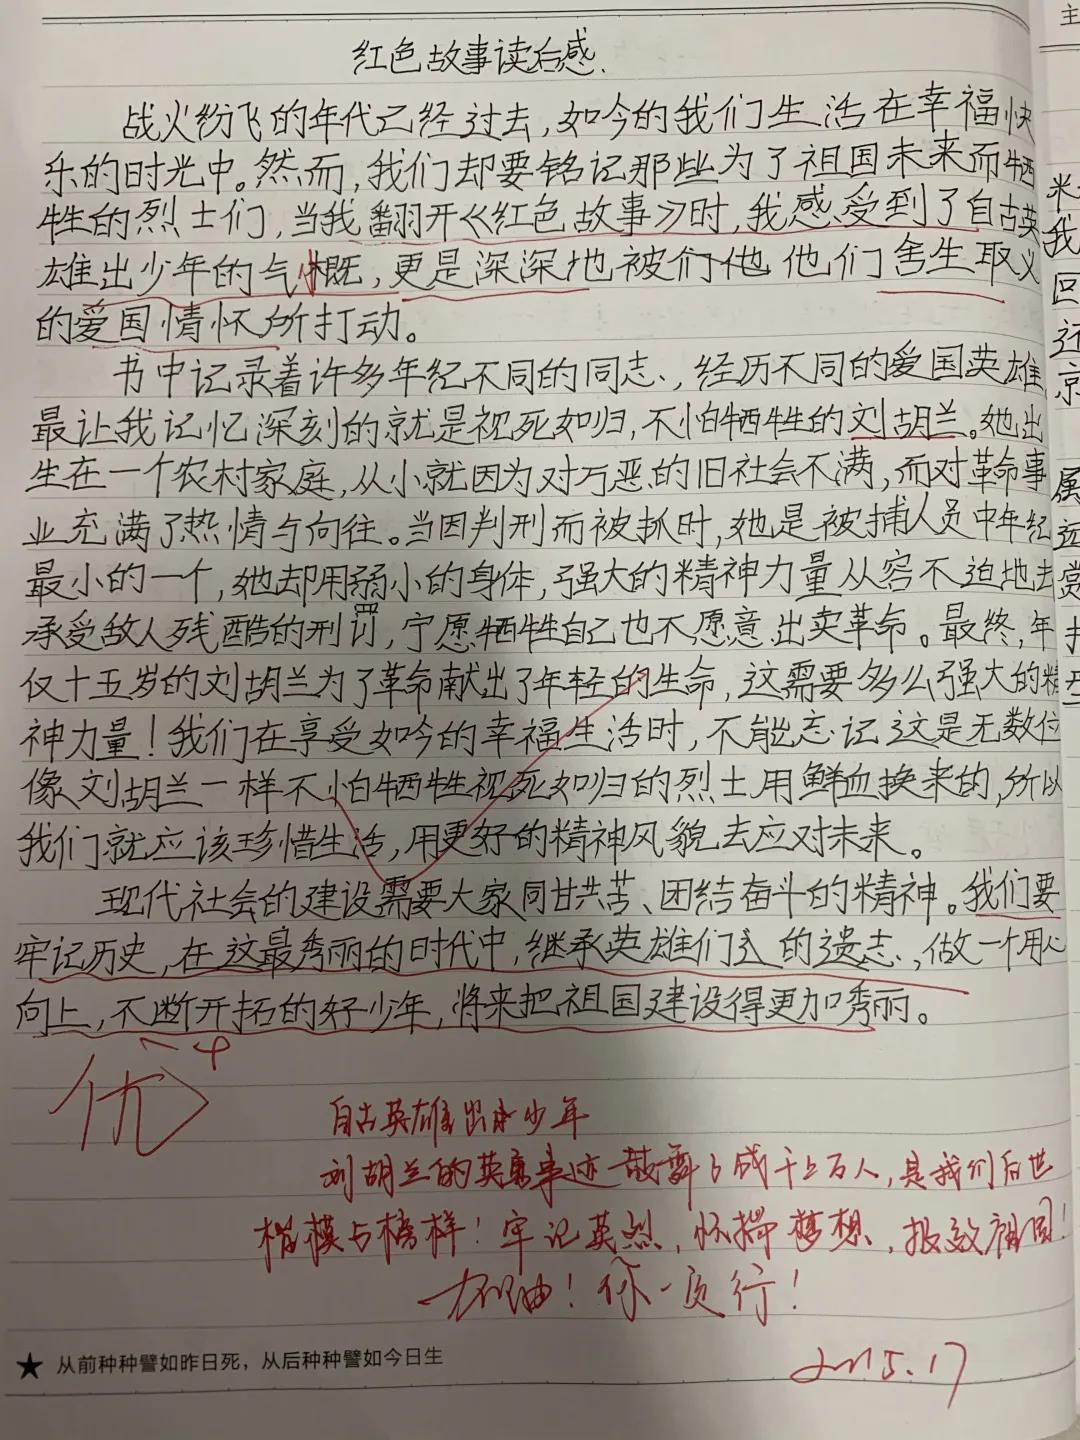 主
红色故事读后感.
战火纷飞的年代已经过去,如今的我们生活在幸福快
乐的时光中。然而,我们却要铭记那些为了祖国未来而牺
牲的烈士们,当我翻开《红色故事》时,我感受到了自古英
雄出少年的气概,更是深深地被们他他们舍生取义
的爱国情怀所打动。
书中记录着许多年纪不同的同志、,经历不同的爱国英雄
最让我记忆深刻的就是视死如归,不怕牺牲的刘胡兰。她出
生在一个农村家庭,从小就因为对万恶的旧社会不满,而对革命事
业充满了热情与向往。当因判刑而被抓时,她是被捕人员中年纪
最小的一个,她却用弱小的身体,强大的精神力量从容不迫地去
承受敌人残酷的刑罚,宁愿牺牲自己也不愿意出卖革命。最终,年
仅十五岁的刘胡兰为了革命献出了年轻的生命,这需要多么强大的精
神力量!我们在享受如今的幸福生活时,不能忘记这是无数位
像刘胡兰一样不怕牺牲视死如归的烈士用鲜血换来的,所以
我们就应该珍惜生活,用更好的精神风貌去应对未来。
现代社会的建设需要大家同甘共苦、团结奋斗的精神。我们要
牢记历史,在这最秀丽的时代中,继承英雄们的遗志,做一个用心
向上,不断开拓的好少年,将来把祖国建设得更加秀丽。
优
自古英雄出少年
刘胡兰的英勇事迹鼓舞了成千上万人,是我们后世
楷模与榜样!牢记英烈,怀揣梦想,报效祖国!
加油!你一定行!
5.17
★ 从前种种譬如昨日死，从后种种譬如今日生
我
回
还
京
属
远
赏